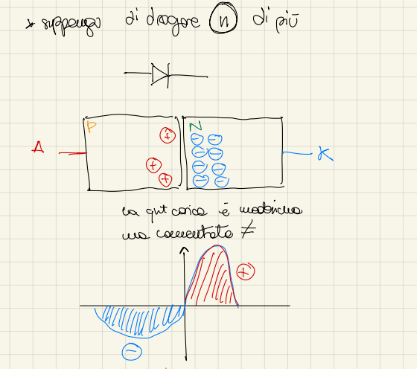 * suppongo di drogare n di più
P N
+ − −
A − − K
+ − −
+ − −
la qnt carica è medesima
ma concentrata ≠
+
−